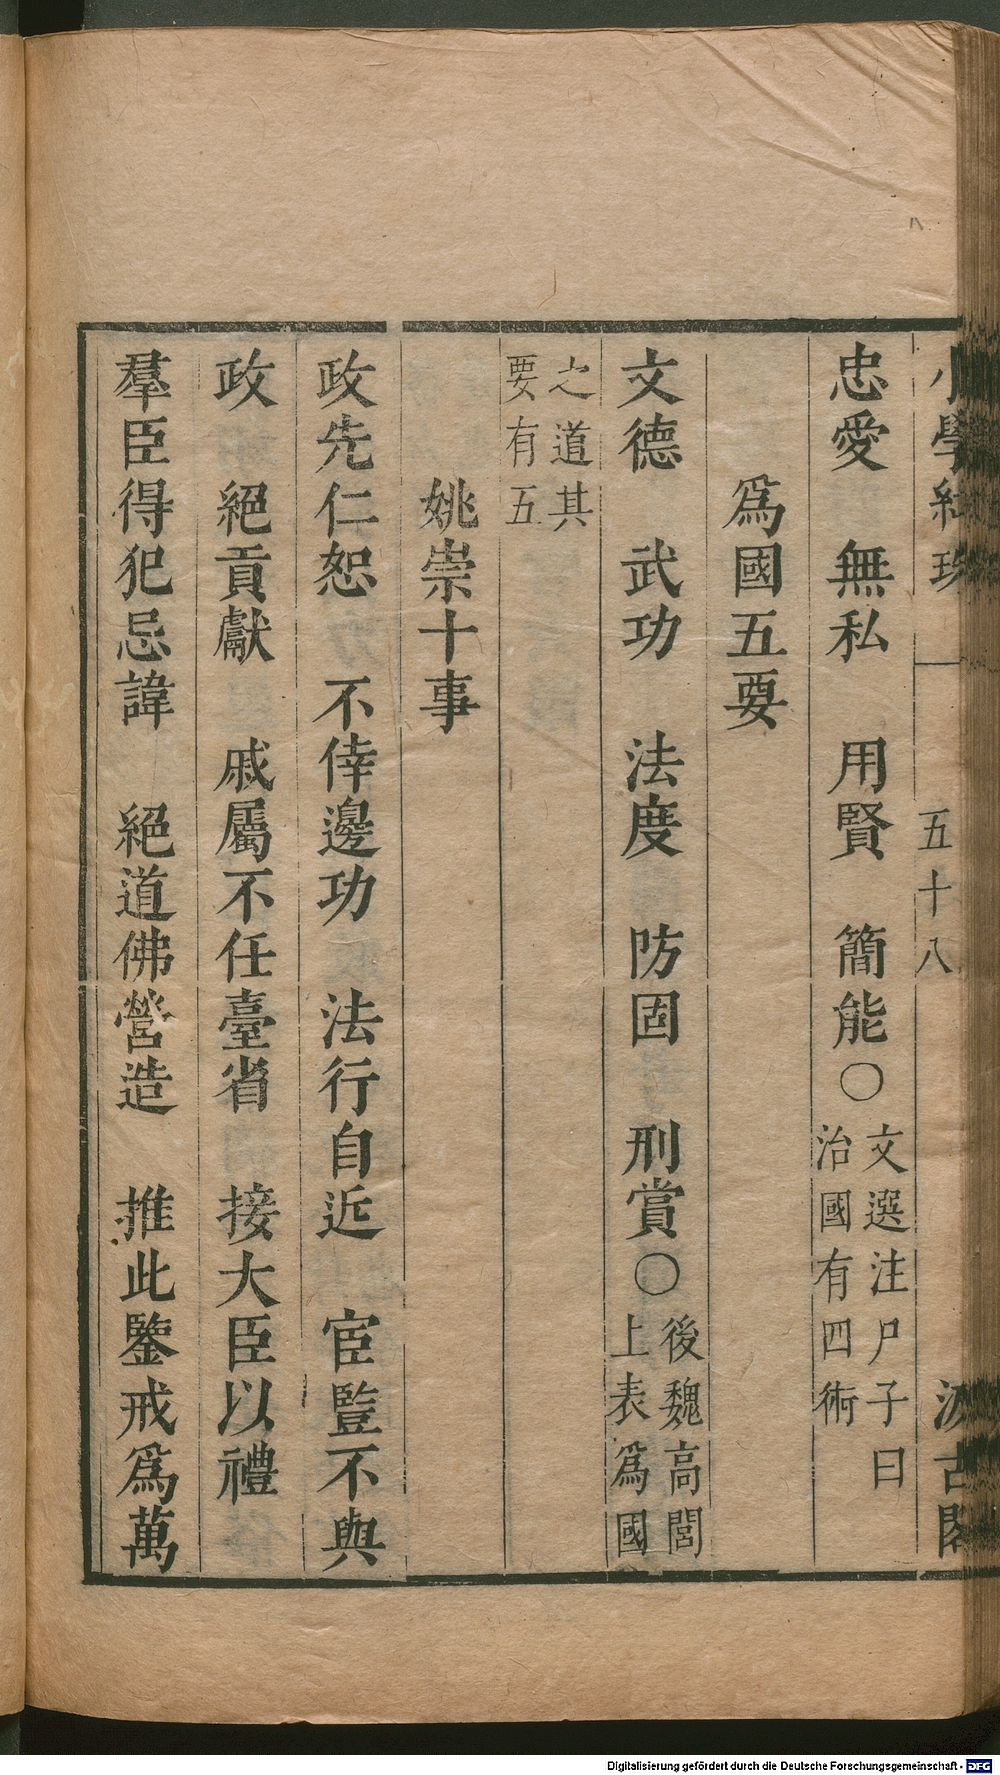 小學紺珠 一 五十八 汲古閣
忠愛 無私 用賢 簡能○文選注尸子曰治國有四術
爲國五要
文德 武功 法度 防固 刑賞○後魏高閭上表爲國
之道其要有五
姚崇十事
政先仁恕 不倖邊功 法行自近 宦豎不與
政 絕貢獻 戚屬不任臺省 接大臣以禮
羣臣得犯忌諱 絕道佛營造 推此鑒戒爲萬
Digitalisierung gefördert durch die Deutsche Forschungsgemeinschaft - DFG